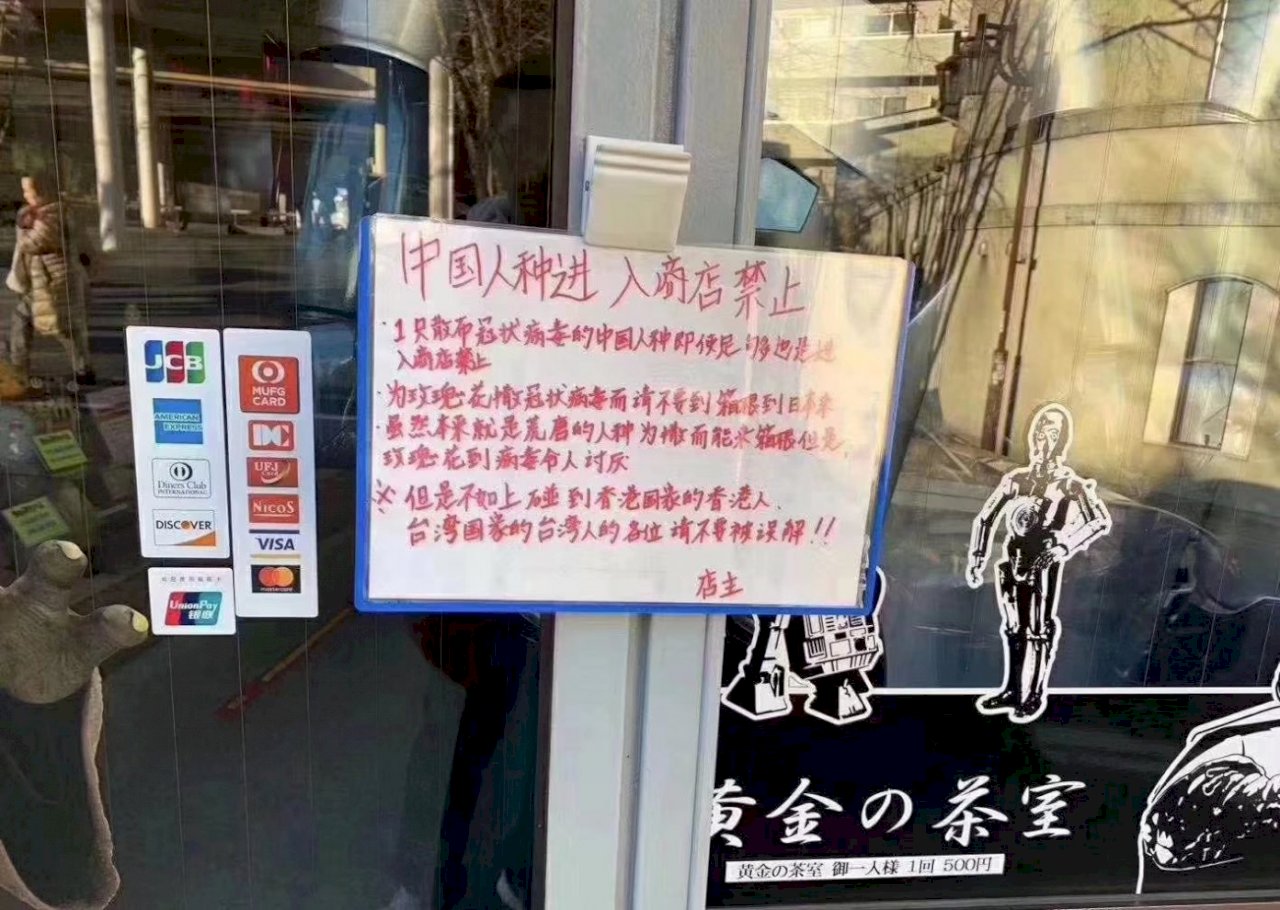 中国人种进 入商店禁止
·1只散布冠状病毒的中国人种即使足够也是进
入商店禁止
·为玫瑰花撒冠状病毒而请不要到箱根到日本来
·虽然本来就是荒磨的人种为撒而能来箱根但是,
玫瑰花到病毒令人讨厌
※但是不如上碰到香港国家的香港人、
台湾国家的台湾人的各位请不要被误解!!
店主
JCB
AMERICAN EXPRESS
Diners Club
INTERNATIONAL
DISCOVER
UnionPay
银联
MUFG
CARD
DC
UFJ
Card
NICOS
VISA
mastercard
黄金の茶室
黄金の茶室 御一人様 1回 500円